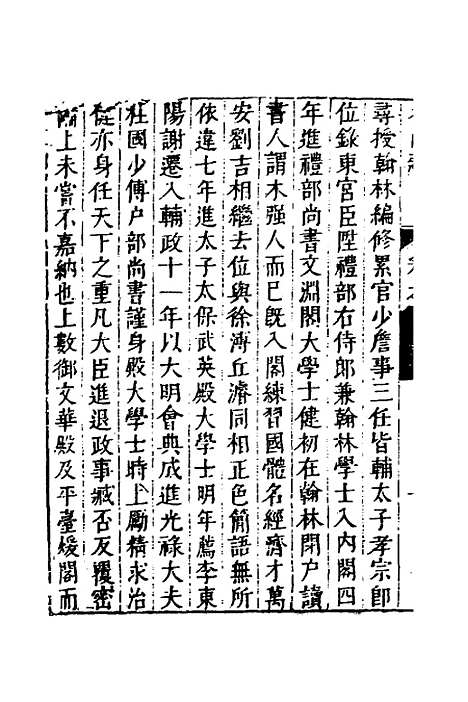 尋授翰林編修累官少詹事三任皆輔太子孝宗卽
位錄東宮臣陞禮部右侍郎兼翰林學士入內閣四
年進禮部尚書文淵閣大學士健初在翰林閉戶讀
書人謂木强人而已旣入閣練習國體名經濟才萬
安劉吉相繼去位與徐溥丘濬同相正色簡語無所
依違七年進太子太保武英殿大學士明年薦李東
陽謝遷入輔政十一年以大明會典成進光祿大夫
柱國少傅户部尚書謹身殿大學士時上勵精求治
健亦身任天下之重凡大臣進退政事臧否反覆密
上未嘗不嘉納也上數御文華殿及平臺煖閣而